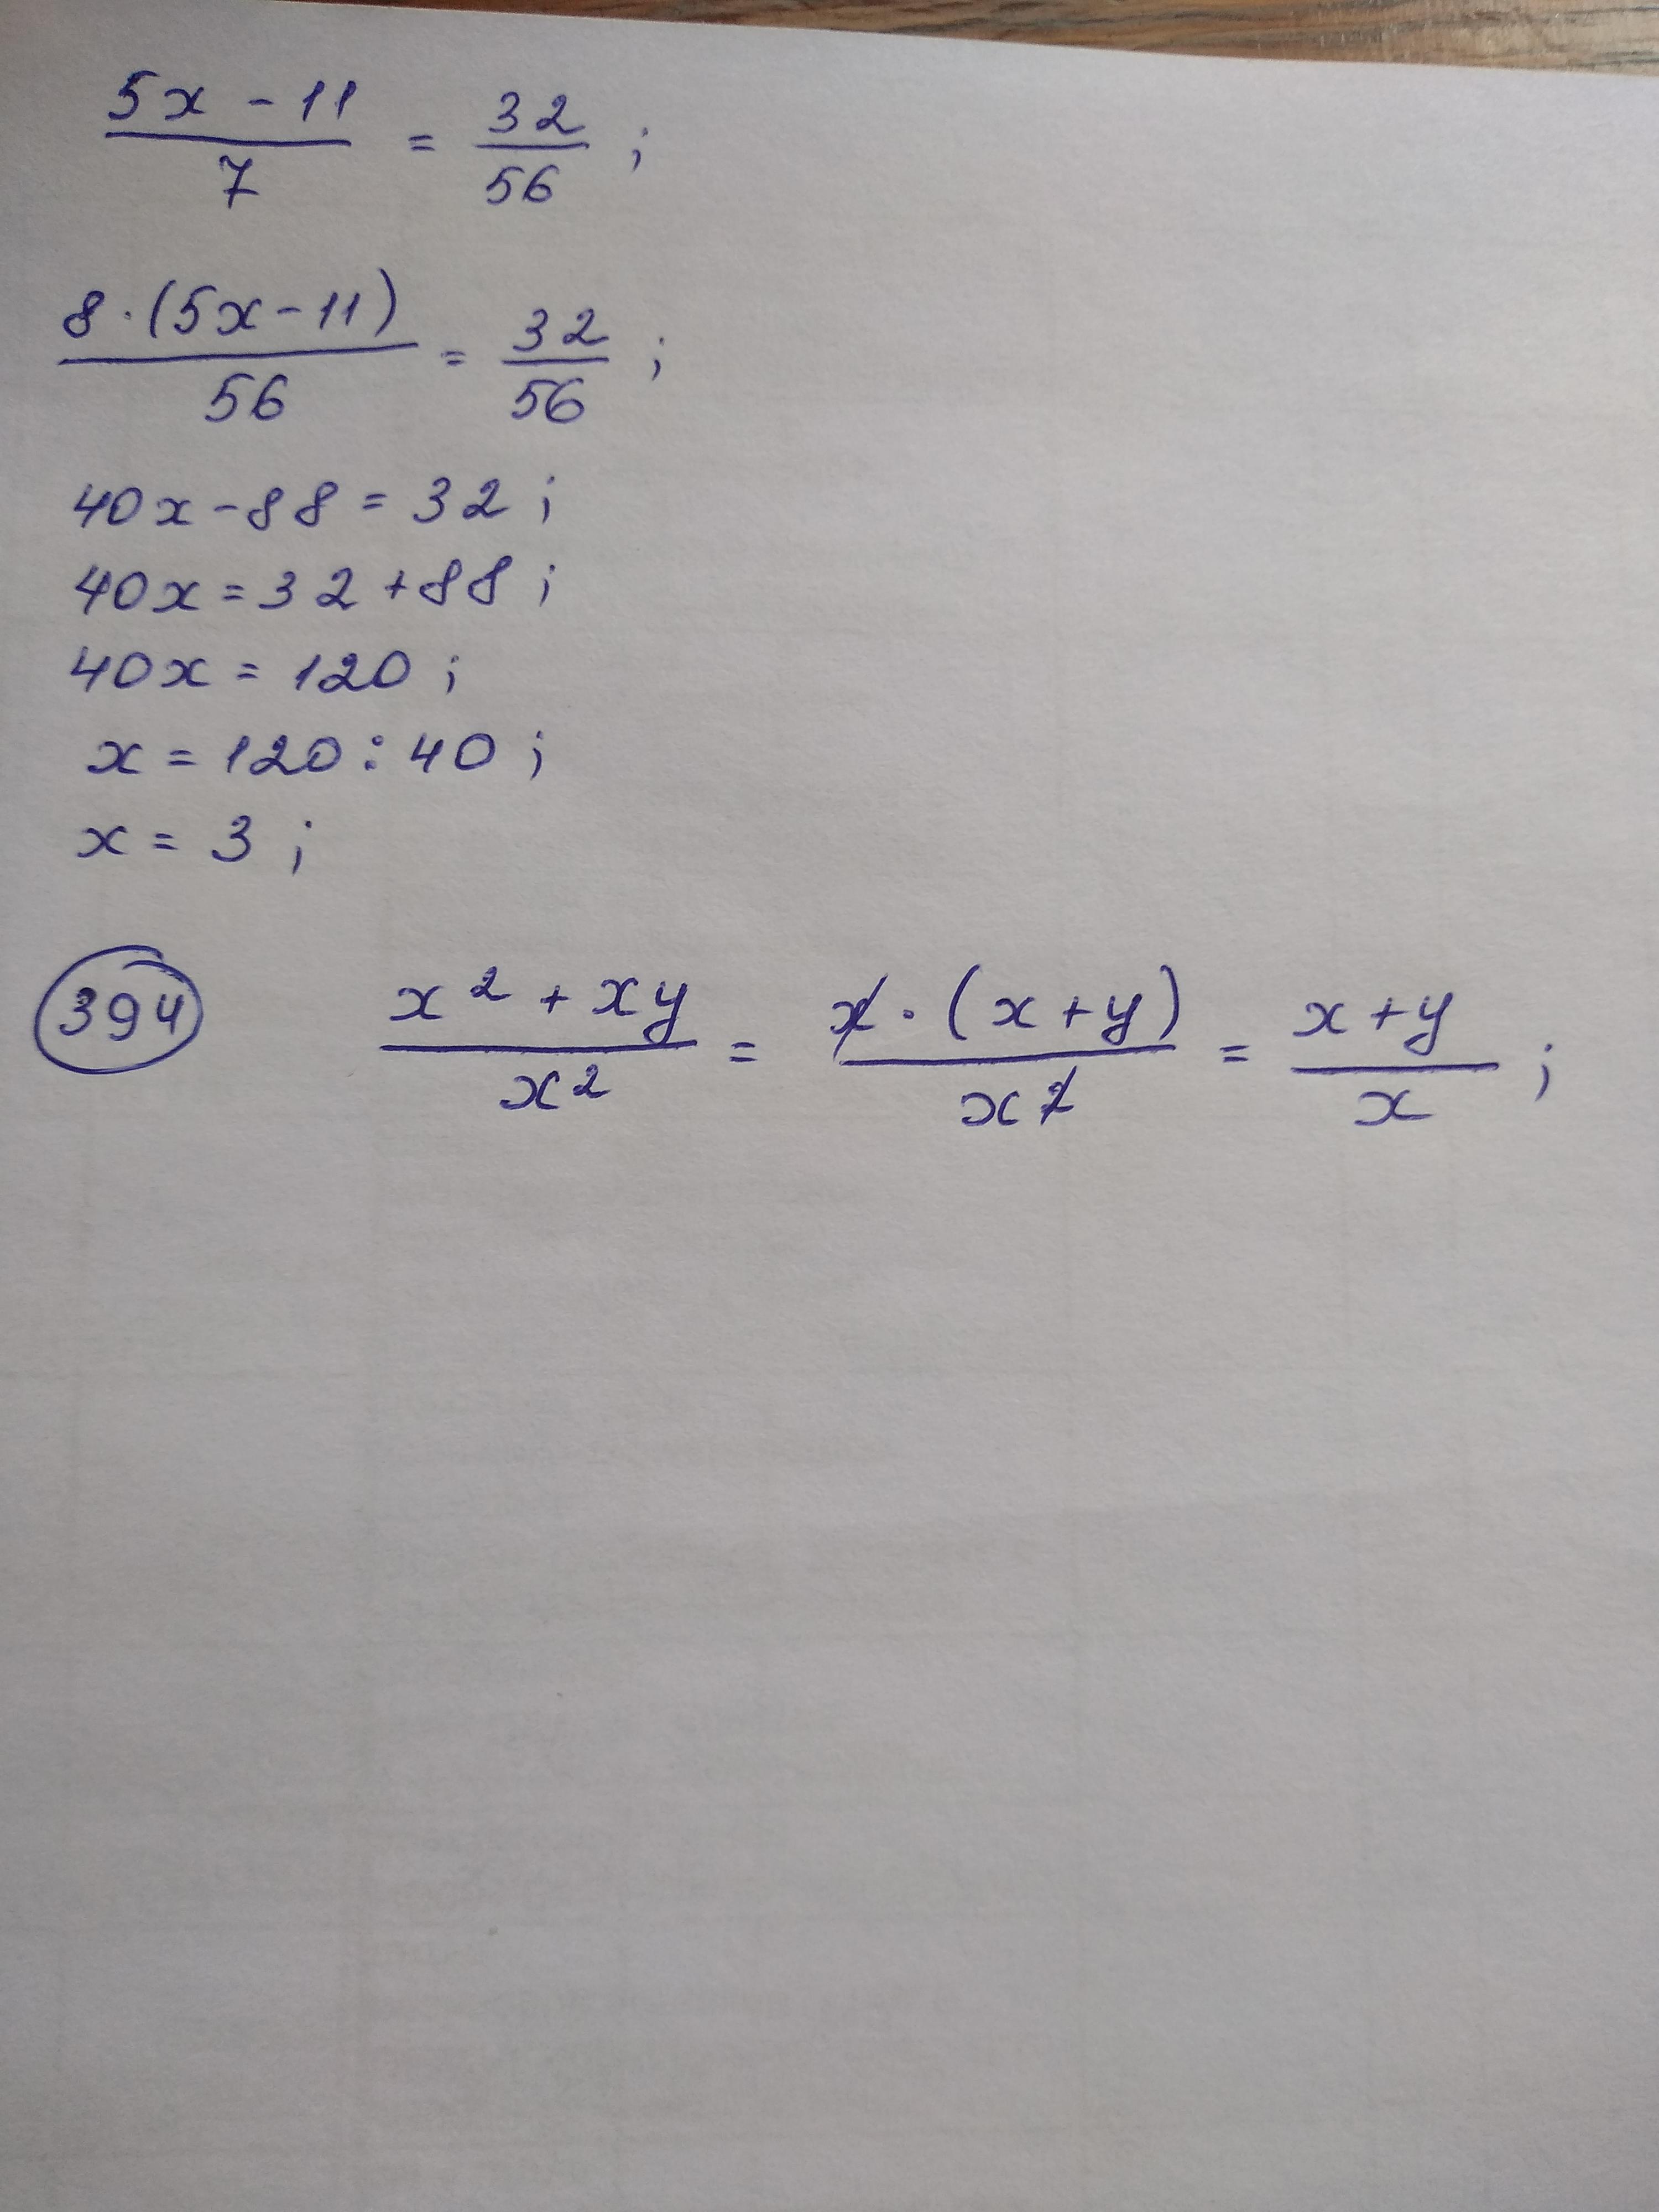 (5x - 11)/7 = 32/56 ;
8·(5x-11)/56 = 32/56 ;
40x-88 = 32 ;
40x = 32 + 88 ;
40x = 120 ;
x = 120 : 40 ;
x = 3 ;
394 (x² + xy)/x² = x·(x+y)/x² = (x+y)/x ;